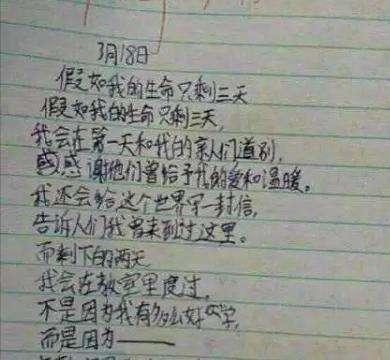 3月18日
假如我的生命只剩三天
假如我的生命只剩三天,
我会在第一天和我的亲人们道别,
感感谢他们曾给予我的爱和温暖。
我还会给这个世界写一封信,
告诉人们我曾来到过这里。
而剩下的两天
我会在教室里度过,
不是因为我有多么好学,
而是因为——